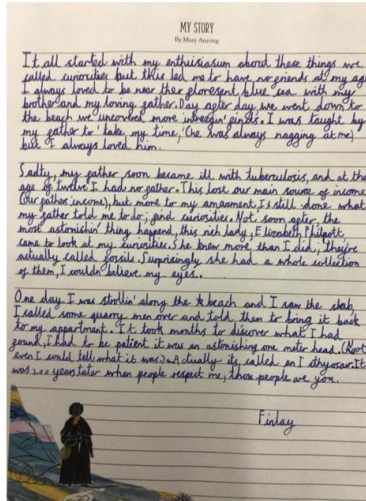 MY STORY
By Mary Anning
It all started with my enthuisiasm about these things we
called curiorities but this led me to have no friends at my age
I always loved to be near ther floresent, blue sea with my
brother and my loving father. Day after day we went down to
the beach we uncovered more intreegin' finds. I was taught by
my father to 'take my time,' (he was always nagging at me)
but I always loved him.
Sadly, my father soon became ill with tuberculosis, and at the
age of twelve I had no father. This lost our main source of income
(Our fathers income), but more to my amazment, I still done what
my father told me to do; find curiosities. Not soon after, the
most astonishin' thing happend, this rich lady, Elizabeth Philpott,
came to look at my curiosities. She knew more than I did; theyre
actually called fossils. Surprisingly she had a whole collection
of them, I couldn't believe my eyes.
One day I was strollin' along the beach and I saw the slab,
I called some quarry men over and told them to bring it back
to my appartment. It took months to discover what I had
found, I had to be patient it was an astonishing one meter head. (Not
even I could tell what it was.) Actually its called an Icthyosar. It
was 200 years later when people respect me, those people are you.
Finlay